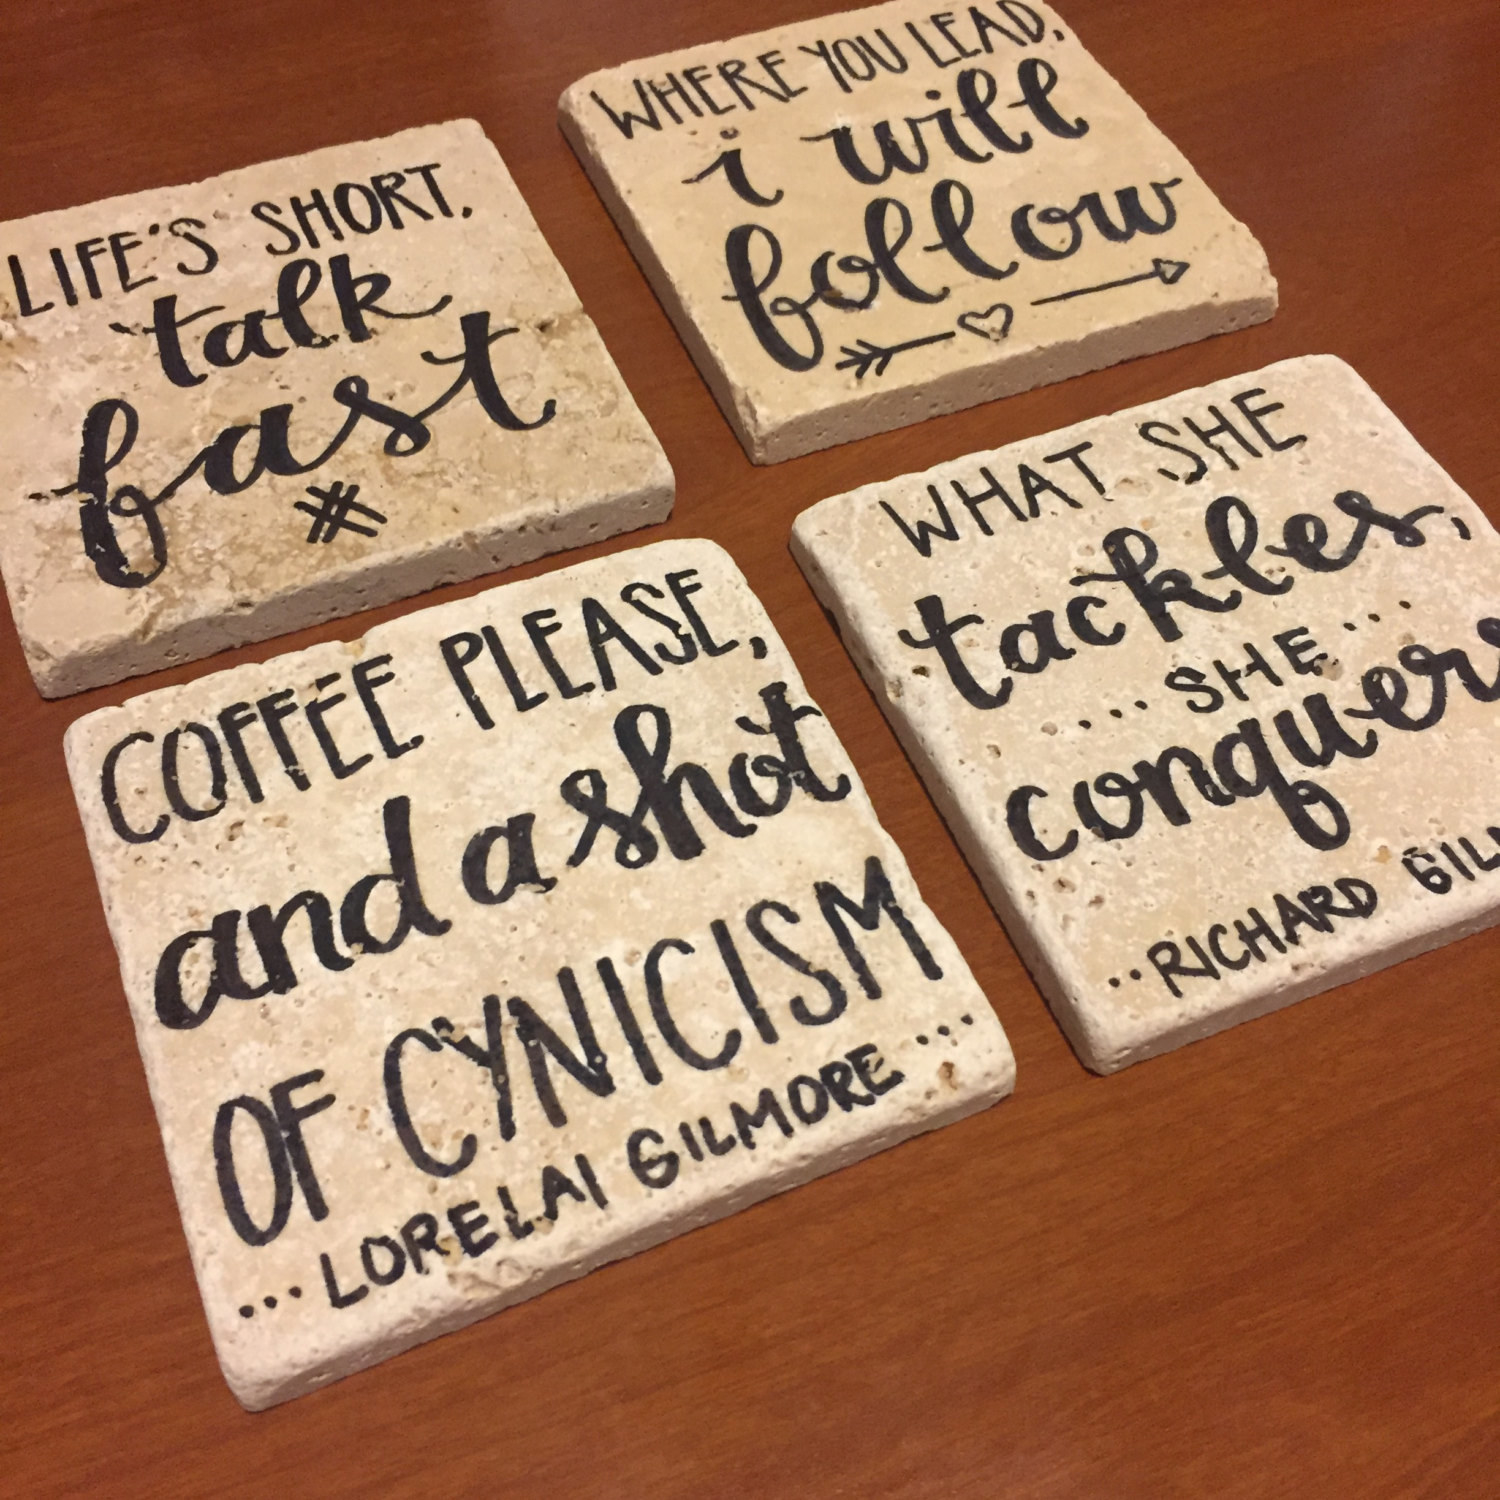 LIFE'S SHORT,
talk
fast
WHERE YOU LEAD,
i will
follow
COFFEE PLEASE,
and a shot
OF CYNICISM
...LORELAI GILMORE...
WHAT SHE
tackles,
....SHE..
conquers
..RICHARD